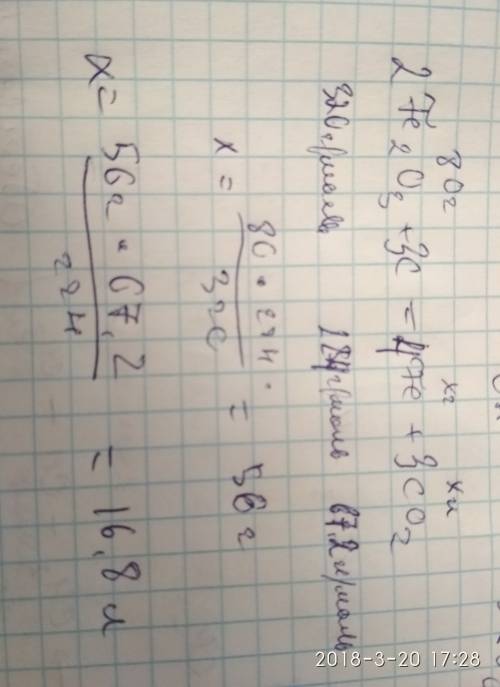 80г хг хл
2Fe₂O₃ + 3C = 4Fe + 3CO₂
320г/моль 224г/моль 67,2л/моль
x = 80 · 224 / 320 = 56г
x = 56г · 67,2 / 224 = 16,8 л
2018-3-20 17:28